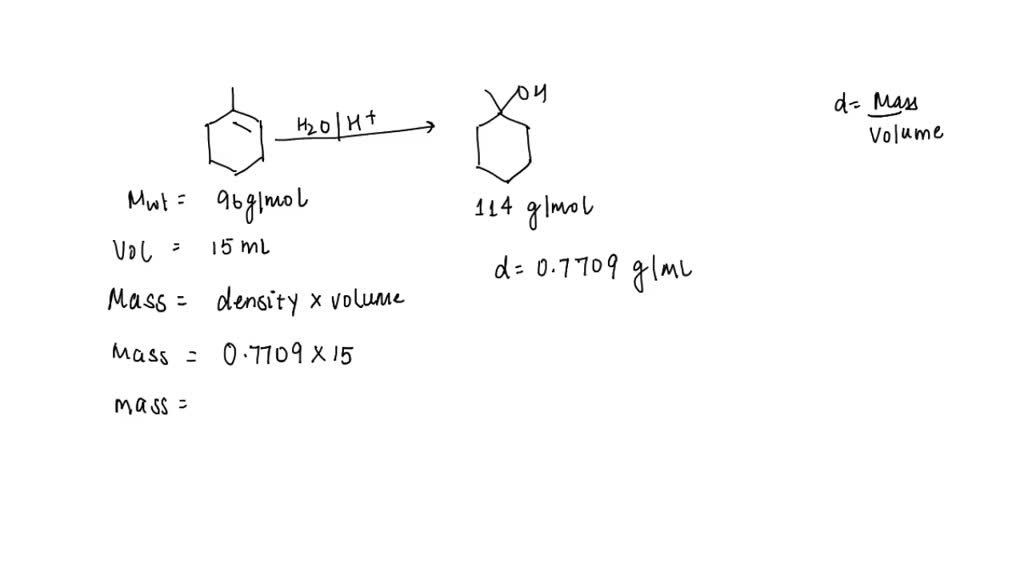 OH
H2O/H+
d= Mass
Volume
Mwt = 96g/mol
114 g/mol
Vol = 15 mL
d= 0.7709 g/mL
Mass = density x volume
Mass = 0.7709 x 15
mass =